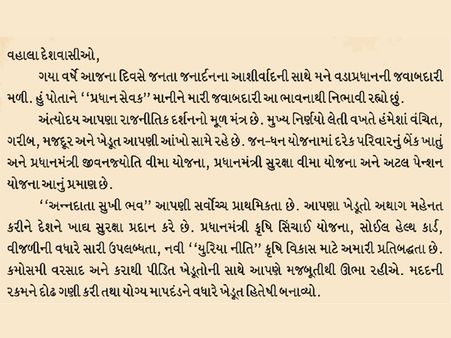 વહાલા દેશવાસીઓ,
ગયા વર્ષે આજના દિવસે જનતા જનાર્દનના આશીર્વાદની સાથે મને વડાપ્રધાનની જવાબદારી
મળી. હું પોતાને ‘‘પ્રધાન સેવક’’ માનીને મારી જવાબદારી આ ભાવનાથી નિભાવી રહ્યો છું.
અંત્યોદય આપણા રાજનીતિક દર્શનનો મૂળ મંત્ર છે. મુખ્ય નિર્ણયો લેતી વખતે હંમેશાં વંચિત,
ગરીબ, મજદૂર અને ખેડૂત આપણી આંખો સામે રહે છે. જન-ધન યોજનામાં દરેક પરિવારનું બેંક ખાતું
અને પ્રધાનમંત્રી જીવનજ્યોતિ વીમા યોજના, પ્રધાનમંત્રી સુરક્ષા વીમા યોજના અને અટલ પેન્શન
યોજના આનું પ્રમાણ છે.
‘‘અન્નદાતા સુખી ભવ’’ આપણી સર્વોચ્ચ પ્રાથમિકતા છે. આપણા ખેડૂતો અથાગ મહેનત
કરીને દેશને ખાદ્ય સુરક્ષા પ્રદાન કરે છે. પ્રધાનમંત્રી કૃષિ સિંચાઈ યોજના, સોઈલ હેલ્થ કાર્ડ,
વીજળીની વધારે સારી ઉપલબ્ધતા, નવી ‘‘યુરિયા નીતિ’’ કૃષિ વિકાસ માટે અમારી પ્રતિબદ્ધતા છે.
કમોસમી વરસાદ અને કરાથી પીડિત ખેડૂતોની સાથે આપણે મજબૂતીથી ઊભા રહીએ. મદદની
રકમને દોઢ ગણી કરી તથા યોગ્ય માપદંડને વધારે ખેડૂત હિતેષી બનાવ્યો.